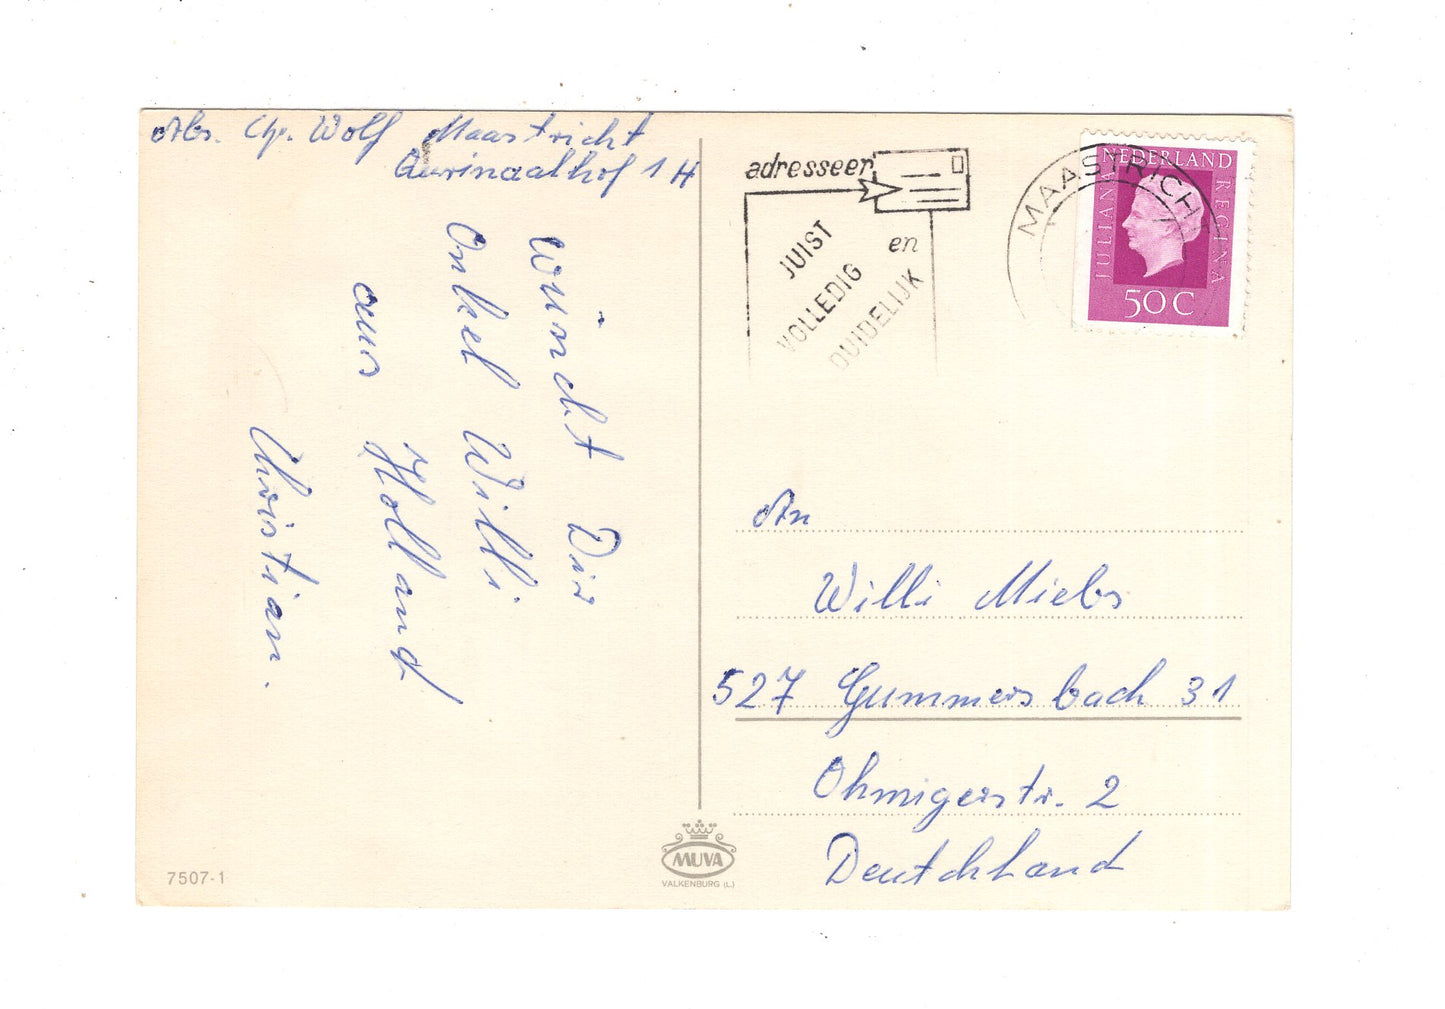 Abs. Chr. Wolf Maastricht
1 H
wünscht Dir
Onkel Willi
aus Holland
Christian.
adresseer
JUIST
VOLLEDIG en
DUIDELIJK
MAASTRICHT
NEDERLAND
JULIANA REGINA
50 C
An
Willi Miebs
527 Gummersbach 31
Ohmigerstr. 2
Deutschland
MUVA
VALKENBURG (L.)
7507-1